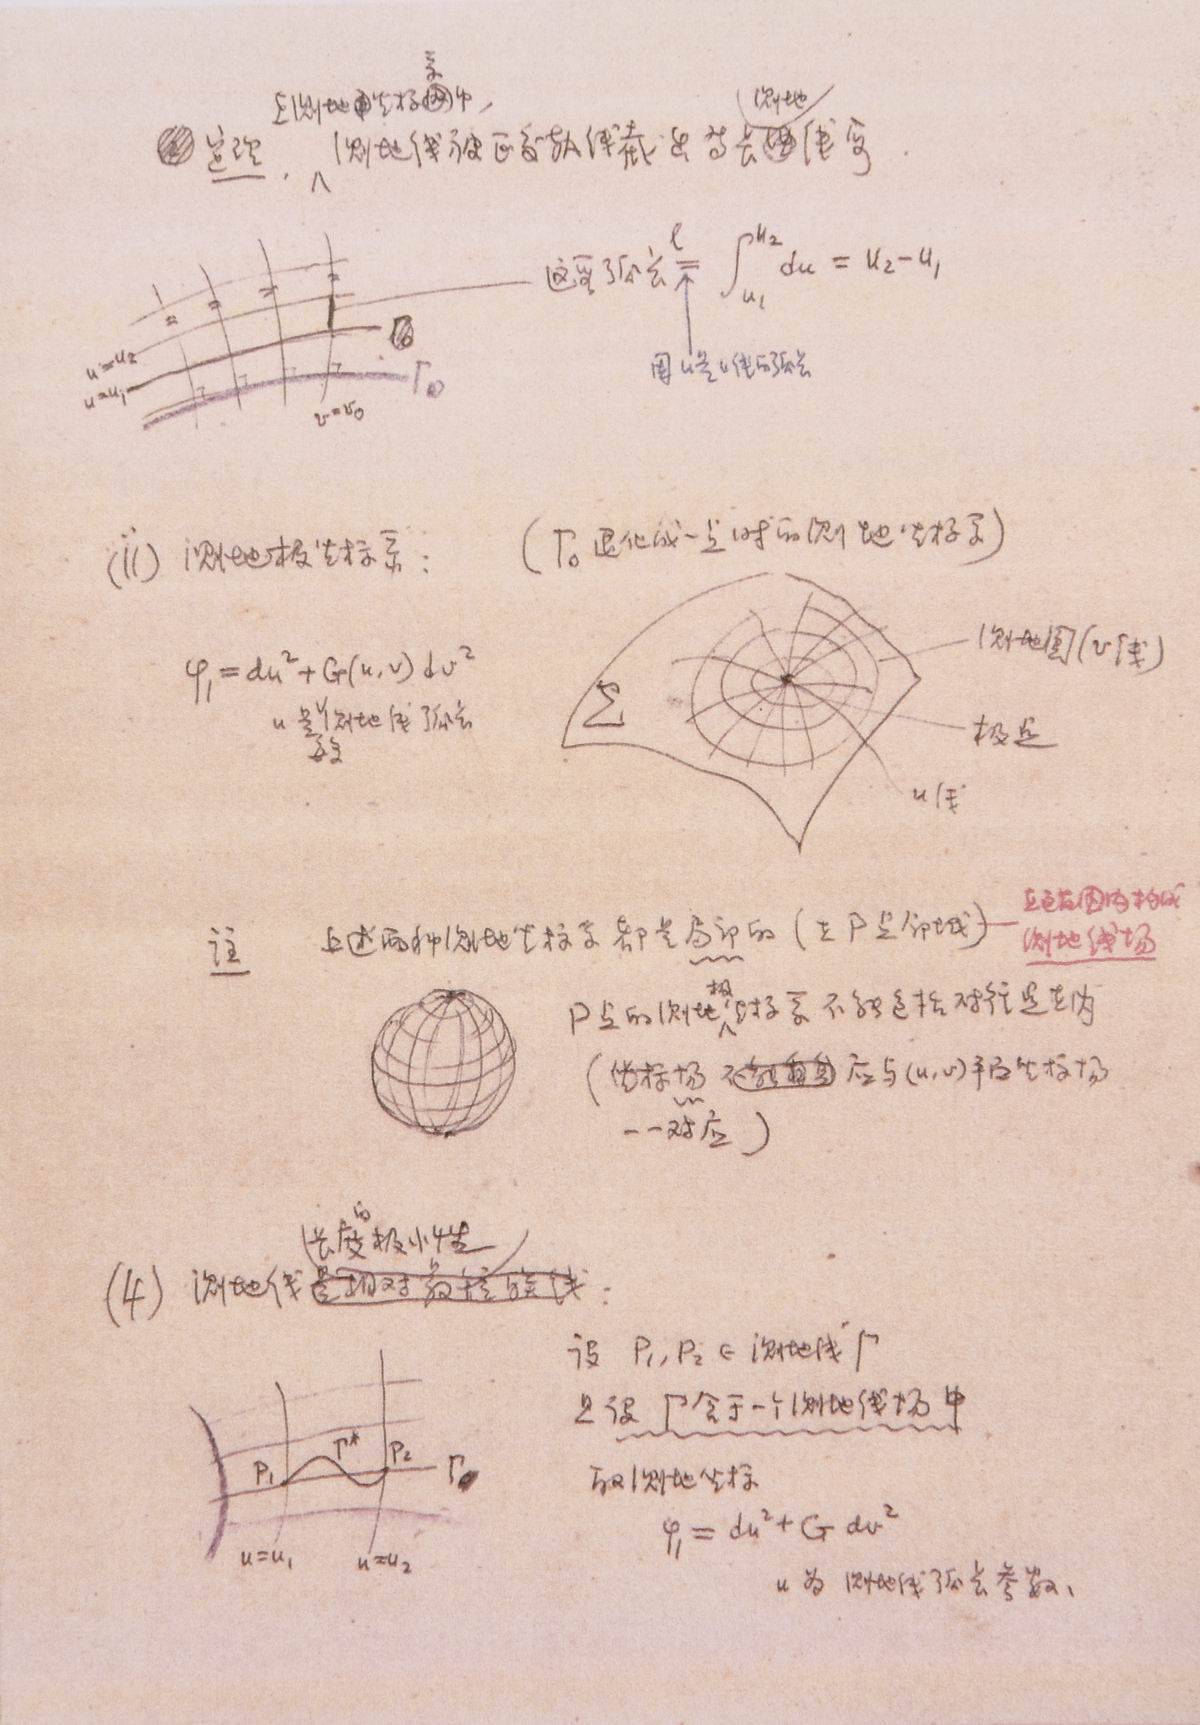 在测地坐标系中,
定理. 测地线被正交轨线截出等长测地线段.
这里弧长 l = ∫_{u₁}^{u₂} du = u₂ - u₁
因u是u线的弧长
u=u₂
u=u₁
Γ₀
v=v₀
(ii) 测地极坐标系: (Γ₀退化成一点时的测地坐标系)
φ₁ = du² + G(u,v) dv²
u是测地线弧长
参数
Σ
测地圆(v线)
极点
u线
注 上述两种测地坐标系都是局部的 (在P点邻域)
在该范围内构成
测地线场
P点的测地极坐标系不能包括对径点在内
(坐标场应与(u,v)平面坐标场
一一对应)
(4) 测地线长度的极小性:
设 P₁, P₂ ∈ 测地线 Γ
且设 Γ含于一个测地线场中
取测地坐标
φ₁ = du² + G dv²
u为测地线弧长参数,
P₁
Γ*
P₂
Γ
u=u₁
u=u₂